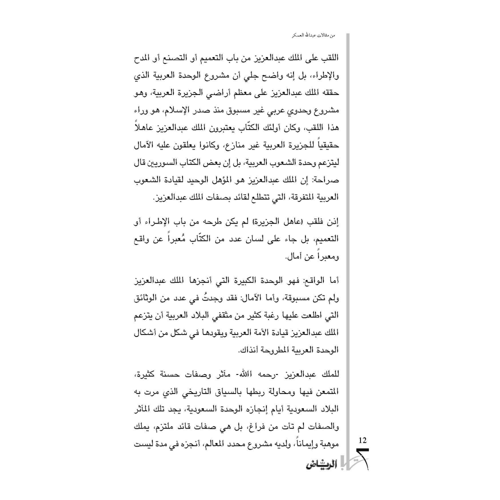 من مقالات عبدالله العسكر
اللقب على الملك عبدالعزيز من باب التعميم أو التصنع أو المدح
والإطراء، بل إنه واضح جلي أن مشروع الوحدة العربية الذي
حققه الملك عبدالعزيز على معظم أراضي الجزيرة العربية، وهو
مشروع وحدوي عربي غير مسبوق منذ صدر الإسلام، هو وراء
هذا اللقب، وكان أولئك الكتّاب يعتبرون الملك عبدالعزيز عاهلاً
حقيقياً للجزيرة العربية غير منازع، وكانوا يعلقون عليه الآمال
ليتزعم وحدة الشعوب العربية، بل إن بعض الكتاب السوريين قال
صراحة: إن الملك عبدالعزيز هو المؤهل الوحيد لقيادة الشعوب
العربية المتفرقة، التي تتطلع لقائد بصفات الملك عبدالعزيز.
إذن فلقب (عاهل الجزيرة) لم يكن طرحه من باب الإطراء أو
التعميم، بل جاء على لسان عدد من الكتّاب مُعبراً عن واقع
ومعبراً عن آمال.
أما الواقع: فهو الوحدة الكبيرة التي أنجزها الملك عبدالعزيز
ولم تكن مسبوقة، وأما الآمال: فقد وجدتُ في عدد من الوثائق
التي اطلعت عليها رغبة كثير من مثقفي البلاد العربية أن يتزعم
الملك عبدالعزيز قيادة الأمة العربية ويقودها في شكل من أشكال
الوحدة العربية المطروحة آنذاك.
للملك عبدالعزيز -رحمه الله- مآثر وصفات حسنة كثيرة،
المتمعن فيها ومحاولة ربطها بالسياق التأريخي الذي مرت به
البلاد السعودية أيام إنجازه الوحدة السعودية، يجد تلك المآثر
والصفات لم تأت من فراغ، بل هي صفات قائد ملتزم، يملك
موهبة وإيماناً، ولديه مشروع محدد المعالم، أنجزه في مدة ليست
12
الرياض